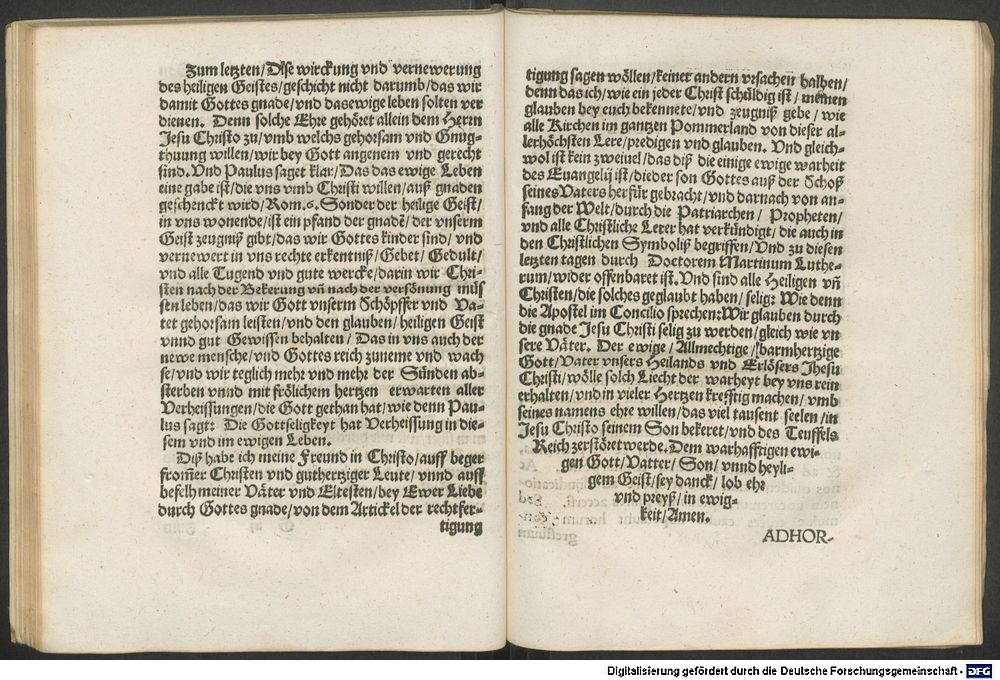 Zum letzten/ Dise wirckung vnd vernewerung
des heiligen Geistes/ geschicht nicht darumb/ das wir
damit Gottes gnade/ vnd das ewige leben solten ver
dienen. Denn solche Ehre gehöret allein dem Herrn
Jesu Christo zu/ vmb welchs gehorsam vnd Gnug-
thuung willen/ wir bey Gott angenem vnd gerecht
sind. Vnd Paulus saget klar/ Das das ewige Leben
eine gabe ist/ die vns vmb Christi willen/ auß gnaden
geschenckt wird/ Rom. 6. Sonder der heilige Geist/
in vns wonende/ ist ein pfand der gnadē/ der vnserm
Geist zeugniß gibt/ das wir Gottes kinder sind/ vnd
vernewert in vns rechte erkentniß/ Gebet/ Gedult/
vnd alle Tugend vnd gute wercke/ darin wir Chri-
sten nach der Bekerung vn̄ nach der versönung müs
sen leben/ das wir Gott vnserm Schöpffer vnd Va-
tet gehorsam leisten/ vnd den glauben/ heiligen Geist
vnnd gut Gewissen behalten/ Das in vns auch der
newe mensche/ vnd Gottes reich zuneme vnd wach
se/ vnd wir teglich mehr vnd mehr der Sünden ab-
sterben vnnd mit frölichem hertzen erwarten aller
Verheissungen/ die Gott gethan hat/ wie denn Pau-
lus sagt: Die Gottseligkeyt hat Verheissung in die-
sem vnd im ewigen Leben.
Diß habe ich meine Freund in Christo/ auff beger
from̄er Christen vnd guthertziger Leute/ vnnd auff
befelh meiner Väter vnd Eltesten/ bey Ewer Liebe
durch Gottes gnade/ von dem Artickel der rechtfer-
tigung
tigung sagen wöllen/ keiner andern vrsachen halben/
denn das ich/ wie ein jeder Christ schüldig ist/ meinen
glauben bey euch bekennete/ vnd zeugniß gebe/ wie
alle Kirchen im gantzen Pommerland von dieser al-
lerhöchsten Lere/ predigen vnd glauben. Vnd gleich-
wol ist kein zweiuel/ das diß die einige ewige warheit
des Euangelij ist/ die der son Gottes auß der Schoß
seines Vaters herfür gebracht/ vnd darnach von an-
fang der Welt/ durch die Patriarchen/ Propheten/
vnd alle Christliche Lerer hat verkündigt/ die auch in
den Christlichen Symboliß begriffen/ Vnd zu diesen
letzten tagen durch Doctorem Martinum Luthe-
rum/ wider offenbaret ist. Vnd sind alle Heiligen vn̄
Christen/ die solches geglaubt haben/ selig: Wie denn
die Apostel im Concilio sprechen: Wir glauben durch
die gnade Jesu Christi selig zu werden/ gleich wie vn
sere Väter. Der ewige/ Allmechtige/ barmhertzige
Gott/ Vater vnsers Heilands vnd Erlösers Jhesu
Christi/ wölle solch Liecht der warheyt bey vns rein
erhalten/ vnd in vieler Hertzen krefftig machen/ vmb
seines namens ehre willen/ das viel tausent seelen/ in
Jesu Christo seinem Son bekeret/ vnd des Teuffels
Reich zerstöret werde. Dem warhafftigen ewi-
gen Gott/ Vatter/ Son/ vnnd heyli-
gem Geist/ sey danck/ lob ehr
vnd preyß/ in ewig-
keit/ Amen.
ADHOR-
Digitalisierung gefördert durch die Deutsche Forschungsgemeinschaft - DFG